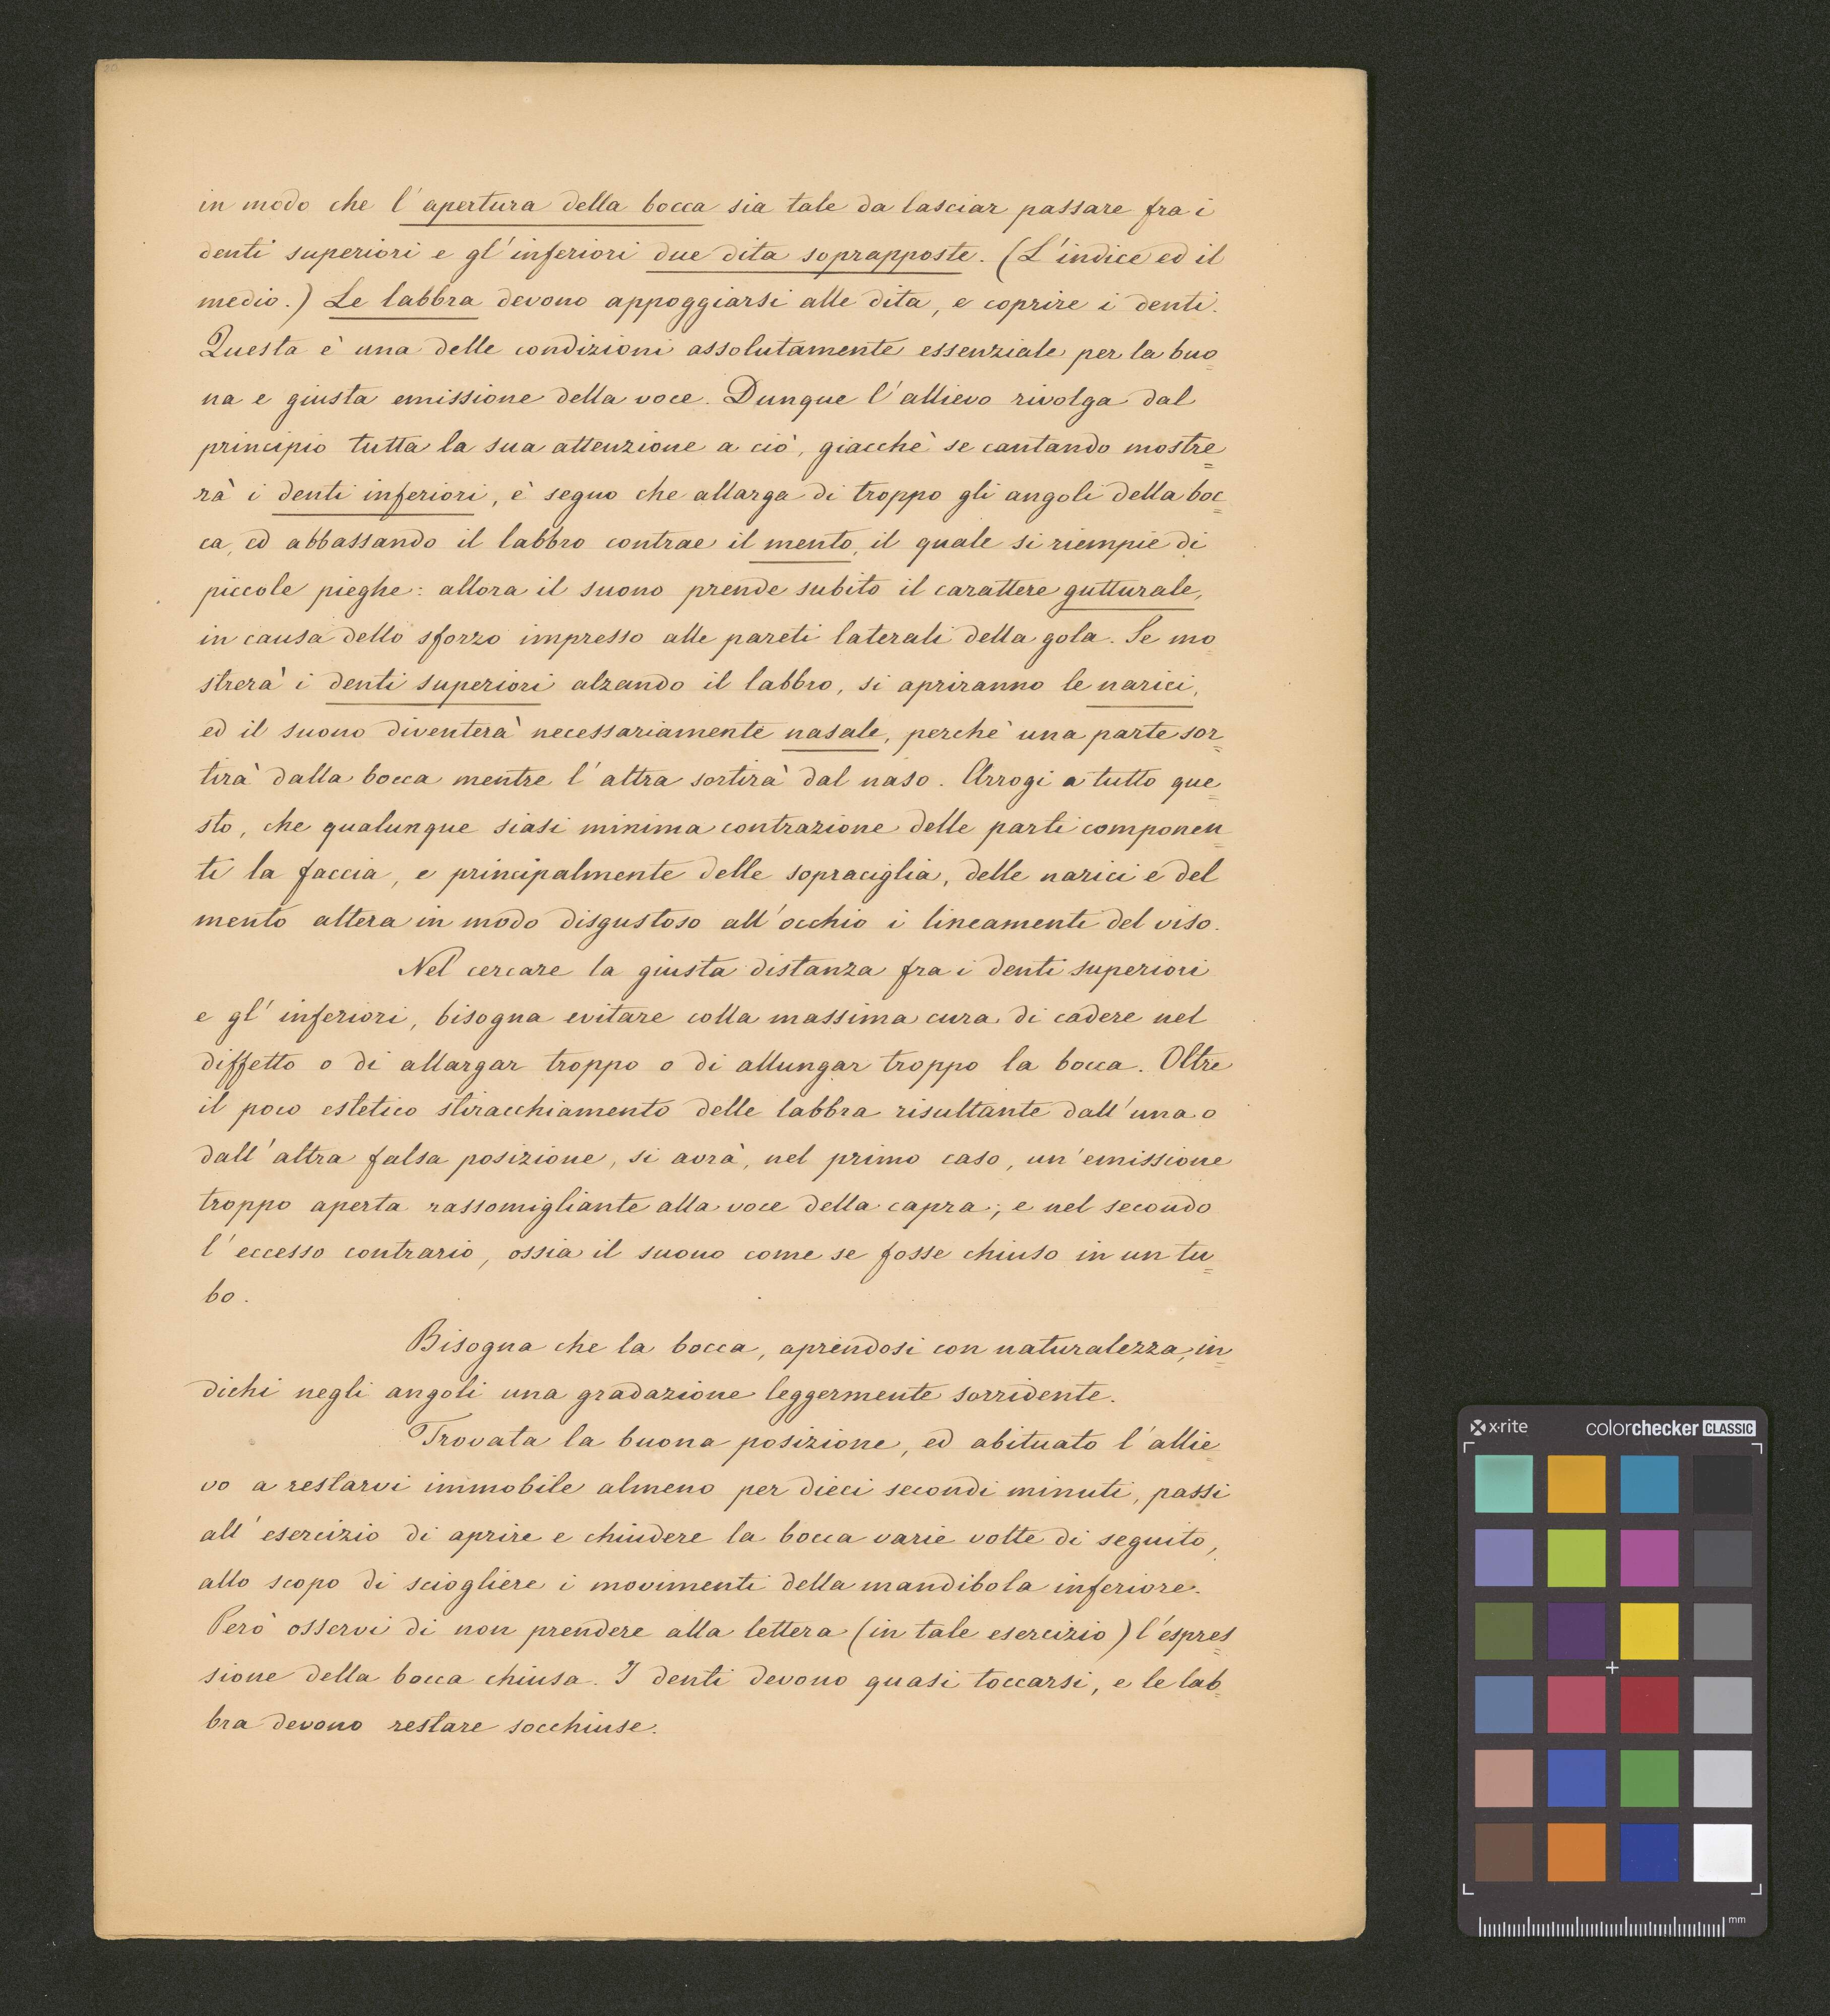 in modo che l'apertura della bocca sia tale da lasciar passare fra i
denti superiori e gl'inferiori due dita soprapposte. (L'indice ed il
medio.) Le labbra devono appoggiarsi alle dita, e coprire i denti.
Questa è una delle condizioni assolutamente essenziale per la buo=
na e giusta emissione della voce. Dunque l'allievo rivolga dal
principio tutta la sua attenzione a ciò, giacchè se cantando mostre=
rà i denti inferiori, è segno che allarga di troppo gli angoli della boc=
ca, ed abbassando il labbro contrae il mento, il quale si riempie di
piccole pieghe: allora il suono prende subito il carattere gutturale,
in causa dello sforzo impresso alle pareti laterali della gola. Se mo=
strerà i denti superiori alzando il labbro, si apriranno le narici,
ed il suono diventerà necessariamente nasale, perchè una parte sor=
tirà dalla bocca mentre l'altra sortirà dal naso. Arrogi a tutto que=
sto, che qualunque siasi minima contrazione delle parti componen=
ti la faccia, e principalmente delle sopraciglia, delle narici e del
mento altera in modo disgustoso all'occhio i lineamenti del viso.
Nel cercare la giusta distanza fra i denti superiori
e gl'inferiori, bisogna evitare colla massima cura di cadere nel
diffetto o di allargar troppo o di allungar troppo la bocca. Oltre
il poco estetico stiracchiamento delle labbra risultante dall'una o
dall'altra falsa posizione, si avrà, nel primo caso, un'emissione
troppo aperta rassomigliante alla voce della capra; e nel secondo
l'eccesso contrario, ossia il suono come se fosse chiuso in un tu=
bo.
Bisogna che la bocca, aprendosi con naturalezza, in=
dichi negli angoli una gradazione leggermente sorridente.
Trovata la buona posizione, ed abituato l'allie=
vo a restarvi immobile almeno per dieci secondi minuti, passi
all'esercizio di aprire e chiudere la bocca varie volte di seguito,
allo scopo di sciogliere i movimenti della mandibola inferiore.
Però osservi di non prendere alla lettera (in tale esercizio) l'espres=
sione della bocca chiusa. I denti devono quasi toccarsi, e le lab=
bra devono restare socchiuse.
x·rite colorchecker CLASSIC
mm